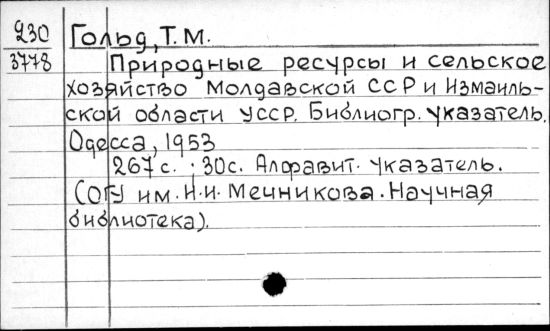 230
3778
Гольд, Т.М.
Природные ресурсы и сельское
хозяйство Молдавской ССР и Измаиль-
ской области УССР. Библиогр. указатель.
Одесса, 1953
267 с. 30с. Алфавит. указатель.
(ОГУ им. И.И. Мечникова. Научная
библиотека).